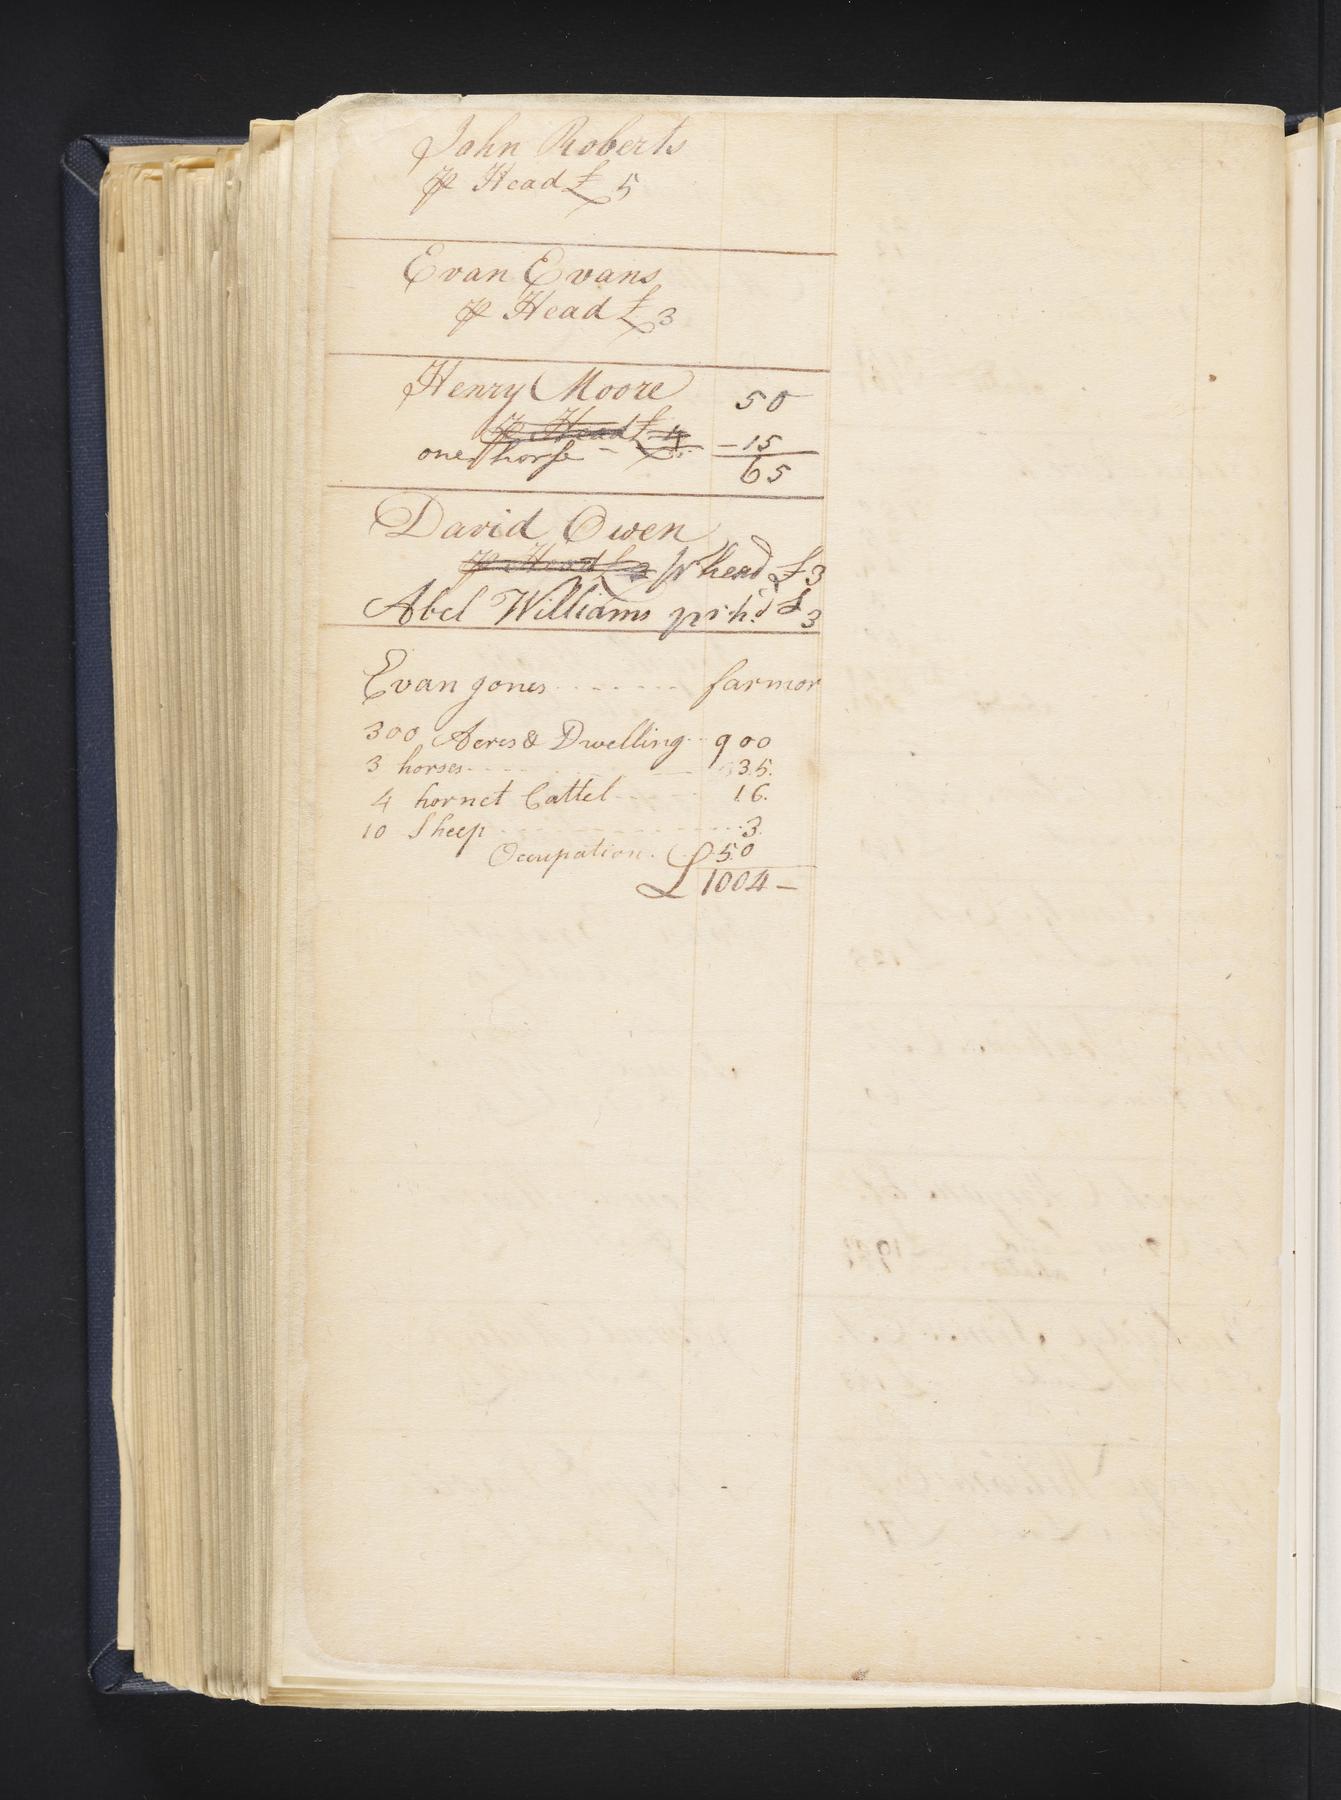 John Roberts
⅌ Head £ 5
Evan Evans
⅌ Head £ 3
Henry Moore 50
⅌ Head £ 4
one horse - - 15
65
David Owen
⅌ Head £ 3 pr head £ 3
Abel Williams pr h:d £ 3
Evan Jones - - - - - - farmor
300 Acres & Dwelling - - 900
3 horses - - - - - - 35.
4 hornet Cattel - - - - 16.
10 Sheep - - - - - - 3.
Occupation. 50
£ 1004 —